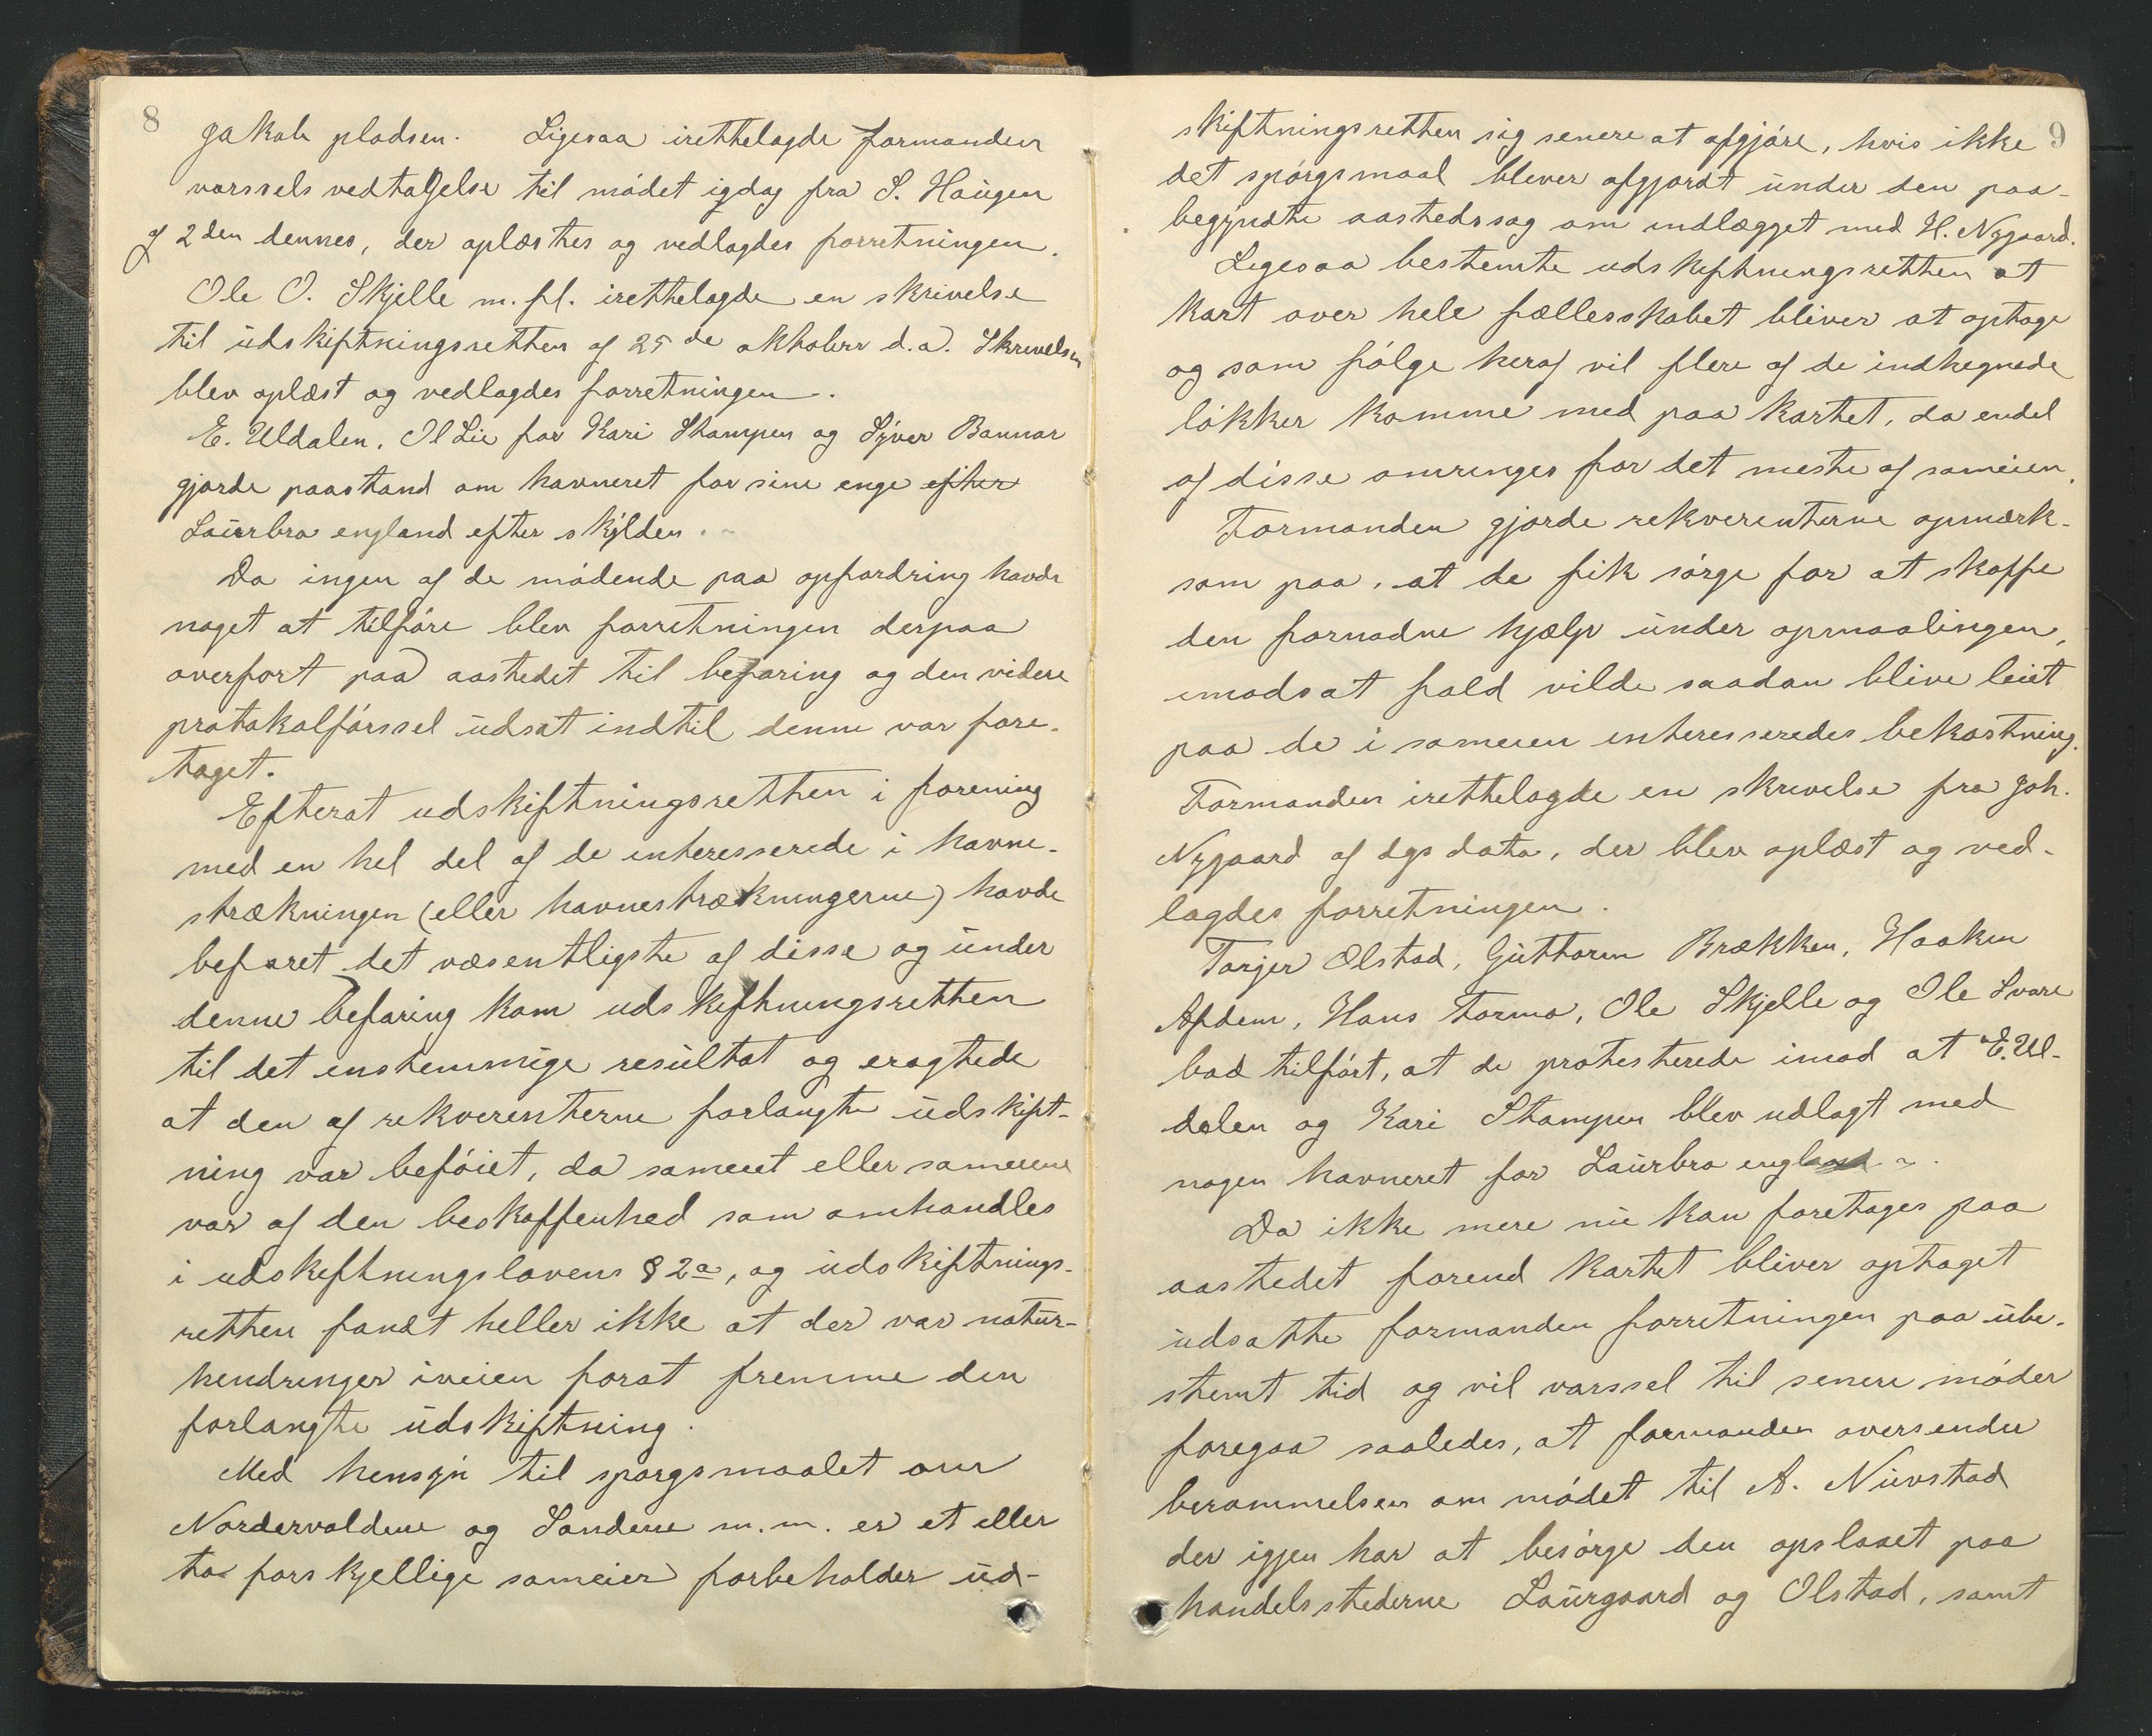 8
Jakob pladsen. Ligesaa irettelagde formanden
varssels vedtagelse til mødet igdag fra S. Haugen
af 2den dennes, der oplæstes og vedlagdes forretningen.
Ole O. Skjelle m. fl. irettelagde en skrivelse
til udskiftningsretten af 25de oktober d.a. Skrivelsen
blev oplæst og vedlagdes forretningen.
E. Uldalen, Ol Lie for Kari Stampen og Syver Bannar
gjorde paastand om havneret for sine enge efter
Laurbro england efter skylden.
Da ingen af de mødende paa opfordring havde
noget at tilføre blev forretningen derpaa
overført paa aastedet til befaring og den videre
protokolførssel udsat indtil denne var fore-
taget.
Efterat udskiftningsretten i forening
med en hel del af de interesserede i havne-
strækningen (eller havnestrækningerne) havde
befaret det væsentligste af disse og under
denne befaring kom udskiftningsretten
til det enstemmige resultat og eragtede
at den af rekverenterne forlangte udskift-
ning var beføiet, da sameiet eller sameiene
var af den beskaffenhed som omhandles
i udskiftningslovens § 2a, og udskiftnings-
retten fandt heller ikke at der var natur-
hendringer iveien forat fremme den
forlangte udskiftning.
Med hensyn til spørgsmaalet om
Nordervoldene og Sandene m.m. er et eller
to forskjellige sameier forbeholder ud-
9
skiftningsretten sig senere at afgjøre, hvis ikke
det spørgsmaal blever afgjordt under den paa-
begyndte aastedssag om indlægget med H. Nygaard.
Ligesaa bestemte udskiftningsretten at
kart over hele fællesskabet bliver at optage
og som følge heraf vil flere af de indhegnede
løkker komme med paa kartet, da endel
af disse omringes for det meste af sameien.
Formanden gjorde rekverenterne opmærk-
som paa, at de fik sørge for at skaffe
den fornødne hjælp under opmaalingen,
imodsat fald vilde saadan blive leiet
paa de i sameien interesseredes bekostning.
Formanden irettelagde en skrivelse fra Joh.
Nygaard af dgs dato, der blev oplæst og ved-
lagdes forretningen.
Torger Olstad, Guttorm Brækken, Haaken
Apdem, Hans Formo, Ole Skjelle og Ole Svare
bad tilført, at de protesterede imod at E. Ul-
dalen og Kari Stampen blev udlagt med
nogen havneret for Laurbro england.
Da ikke mere nu kan foretages paa
aastedet forend kartet bliver optaget
udsatte formanden forretningen paa ube-
stemt tid og vil varssel til senere møder
foregaa saaledes, at formanden oversender
berammelsen om mødet til A. Nuvstad
der igjen har at besørge den opslaaet paa
handelsstederne Laurgaard og Olstad, samt